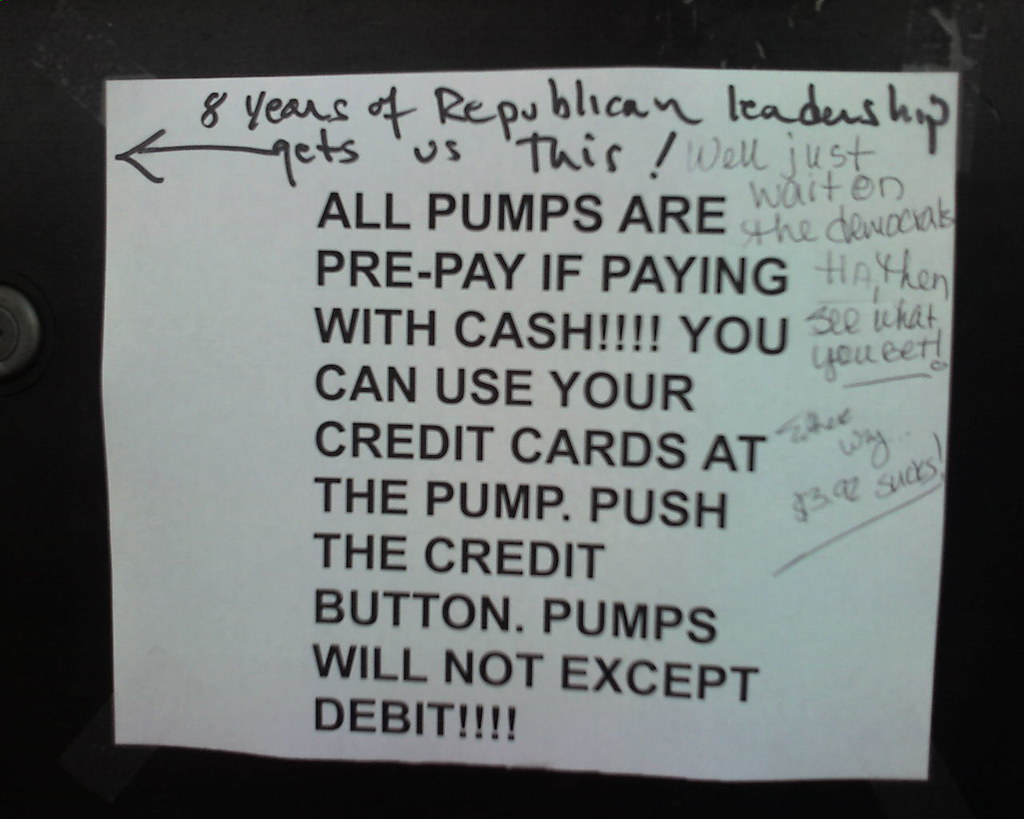 8 years of Republican leadership
gets us This!
Well just
wait on
the democrats
HA, then
see what
you get!
Either
way...
$3.92 sucks!
ALL PUMPS ARE
PRE-PAY IF PAYING
WITH CASH!!!! YOU
CAN USE YOUR
CREDIT CARDS AT
THE PUMP. PUSH
THE CREDIT
BUTTON. PUMPS
WILL NOT EXCEPT
DEBIT!!!!